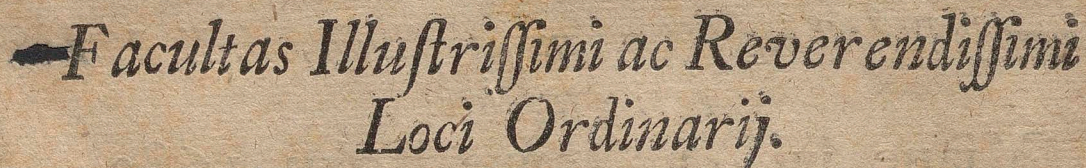 Facultas Illuſtriſſimi ac Reverendiſſimi
Loci Ordinarij.